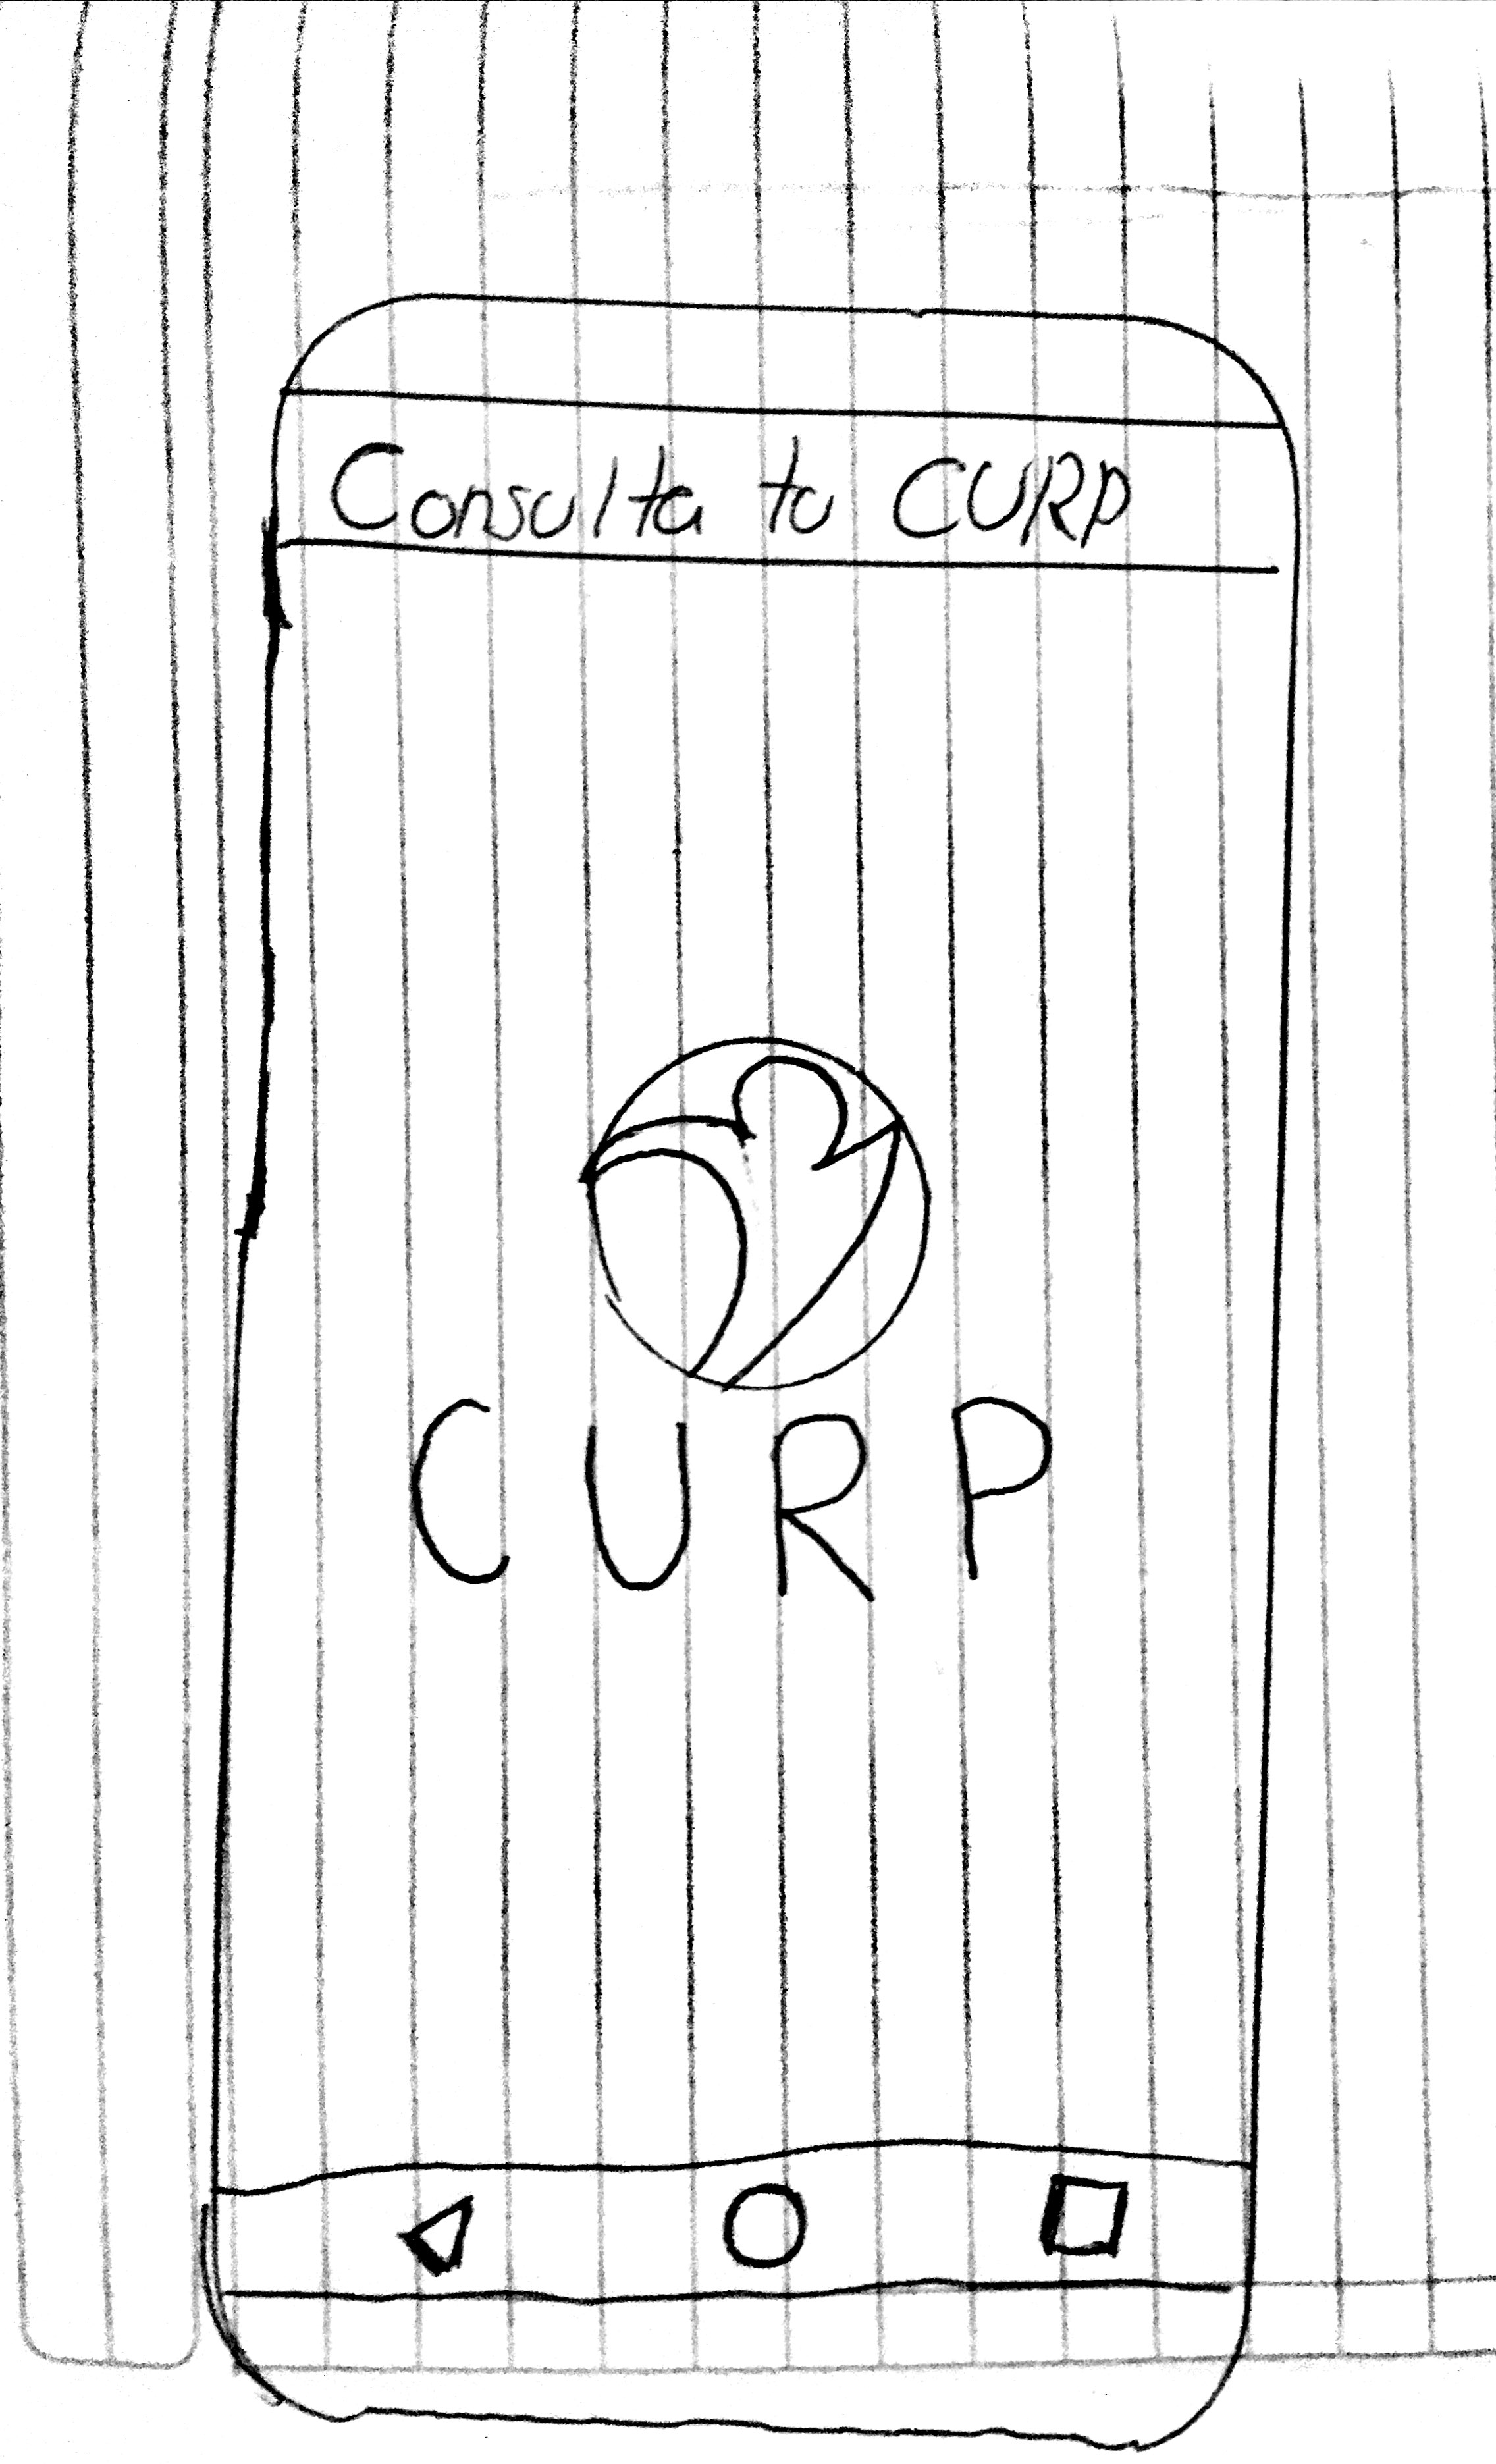 Consulta tu CURP
CURP